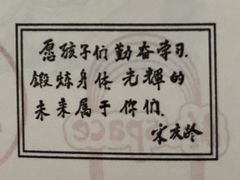 愿孩子们勤奋学习.
锻炼身体.光辉的
未来属于你们.
宋庆龄
space